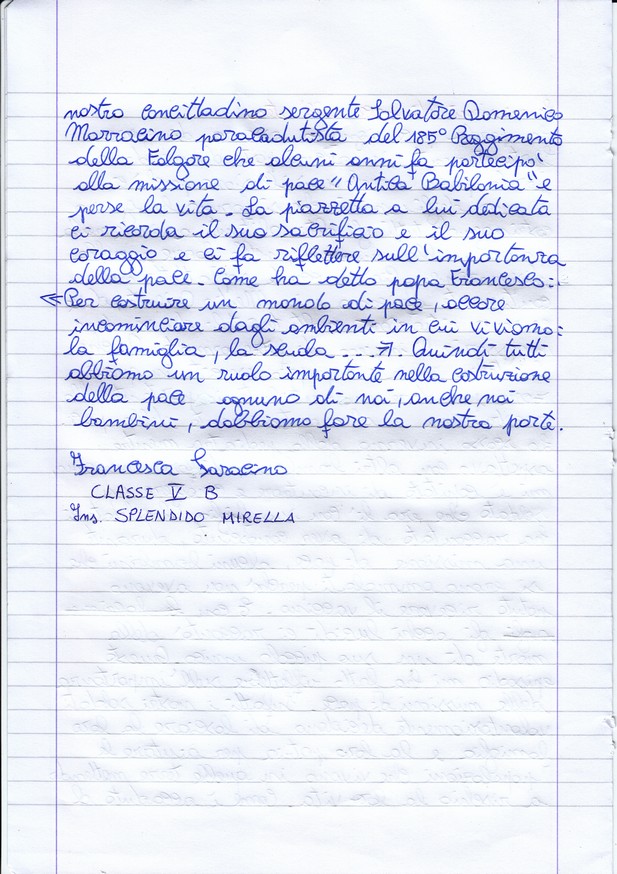 nostro concittadino sergente Salvatore Domenico
Marracino paracadutista del 185° Reggimento
della Folgore che alcuni anni fa partecipò
alla missione di pace "Antica Babilonia" e
perse la vita. La piazzetta a lui dedicata
ci ricorda il suo sacrificio e il suo
coraggio e ci fa riflettere sull'importanza
della pace. Come ha detto papa Francesco:
≪Per costruire un mondo di pace, occore
incominciare dagli ambienti in cui viviamo:
la famiglia, la scuola...≫. Quindi tutti
abbiamo un ruolo importante nella costruzione
della pace ognuno di noi, anche noi
bambini, dobbiamo fare la nostra parte.
Francesca Saracino
CLASSE V B
Ins. SPLENDIDO MIRELLA